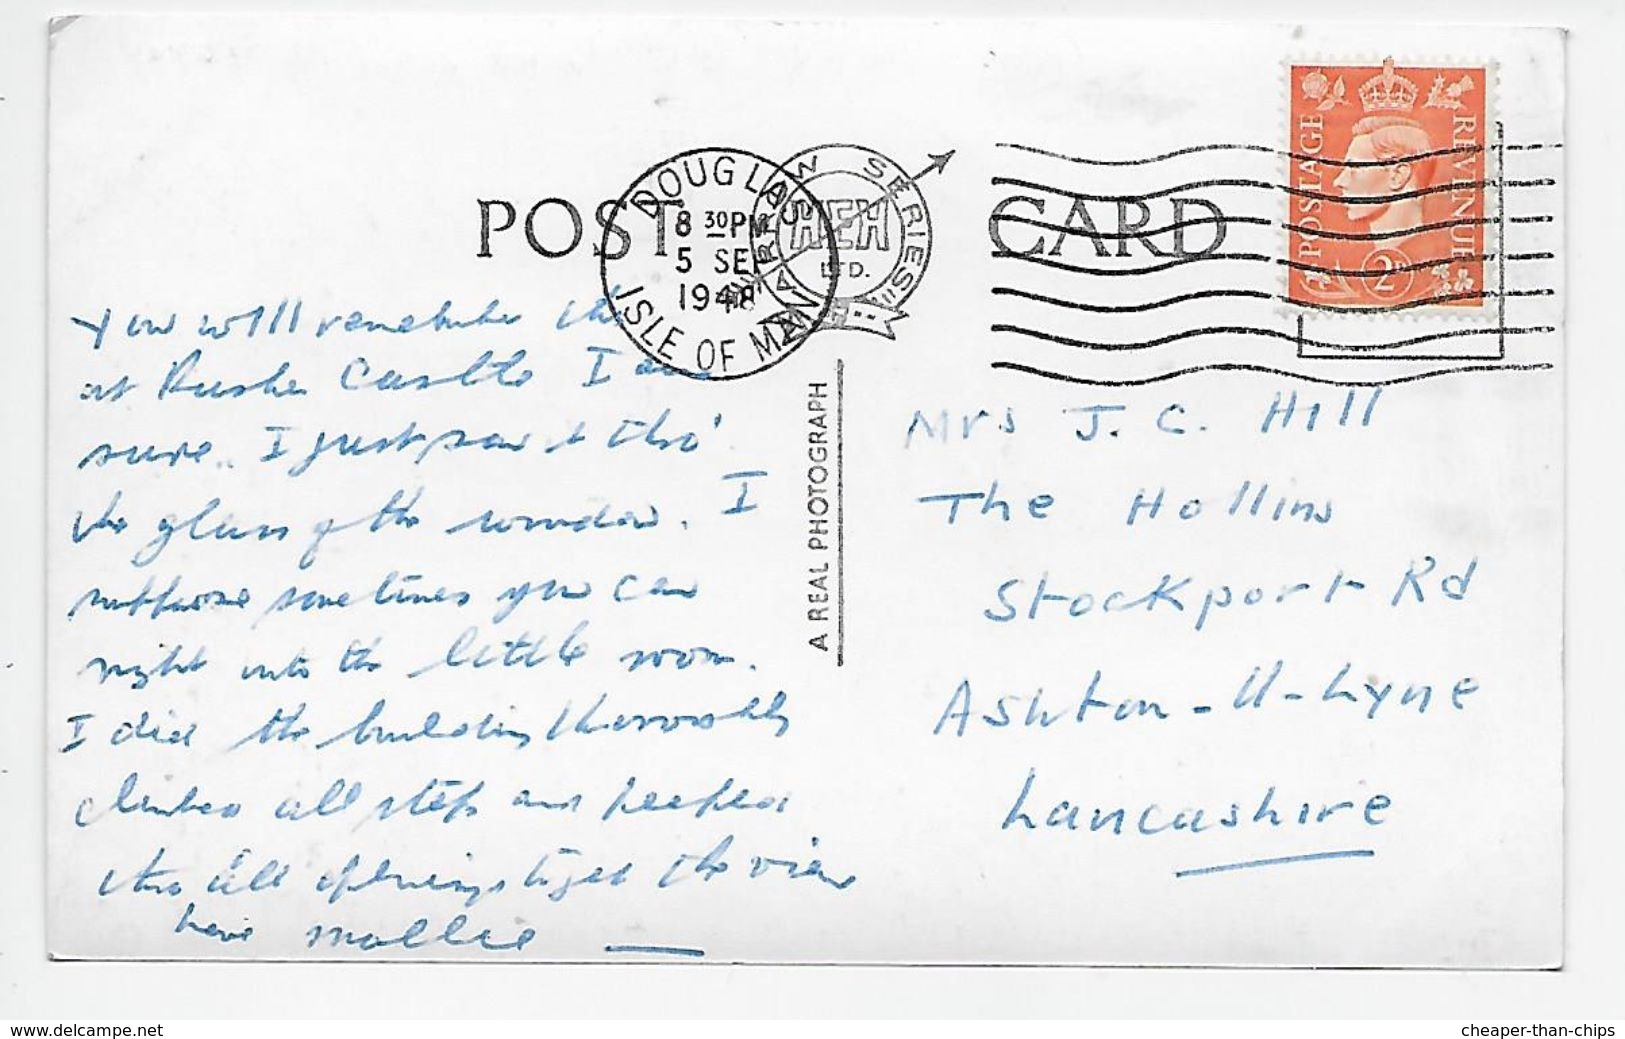 POST CARD
"ARROW SERIES"
HEH
LTD.
DOUGLAS
8 30PM
5 SEP
1948
ISLE OF MAN
POSTAGE
REVENUE
2D
A REAL PHOTOGRAPH
You will remember this
at Rushen Castle I am
sure. I just saw it thro'
the glass of the window. I
suppose sometimes you can
right into the little room.
I did the building thoroughly
climbed all steps and peeped
thro all openings to get the view
love Mollie
Mrs J. C. Hill
The Hollins
Stockport Rd
Ashton-U-Lyne
Lancashire
www.delcampe.net
cheaper-than-chips